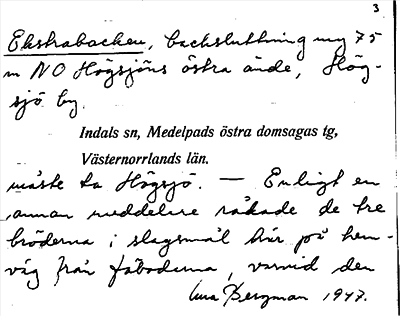 3
Ekstrabacken, backsluttning ung 75
m NO Högsjöns östra ände, Hög-
sjö by.
Indals sn, Medelpads östra domsagas tg,
Västernorrlands län.
måste ta Högsjö. — Enligt en
annan meddelare råkade de tre
bröderna i slagsmål här på hem-
väg från fäbodarna, varvid den
Bergman 1947.